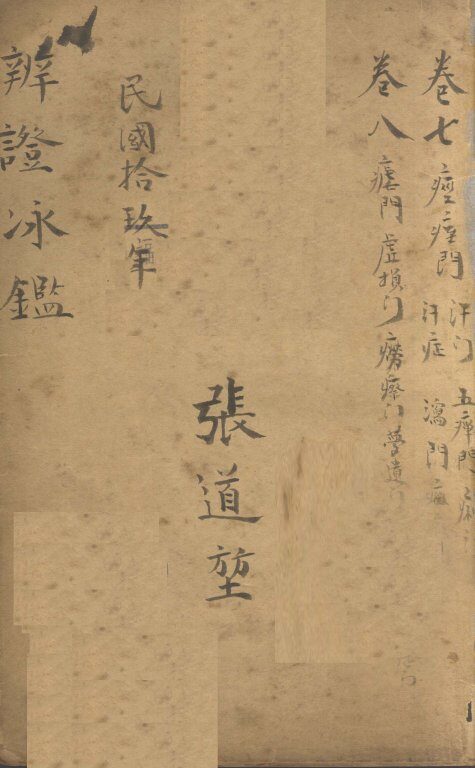 卷七 痙痓門 汗门 五瘅門
汗症 瀉門
卷八 瘧門 虛損门 癆瘵门 夢遺
張道堃
民國拾玖年
辨證冰鑑